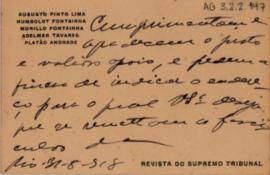 AG 3.2.2.947
AUGUSTO PINTO LIMA
HUMBOLDT FONTAINHA
MURILLO FONTAINHA
ADELMAR TAVARES
PLATÃO ANDRADE
Cumprimentam e
agradecem o justo
e valioso apoio, e pedem a
fineza de indicar o endere
ço para o qual
que se remettam os fasci
culos
Rio 31-8-918
REVISTA DO SUPREMO TRIBUNAL